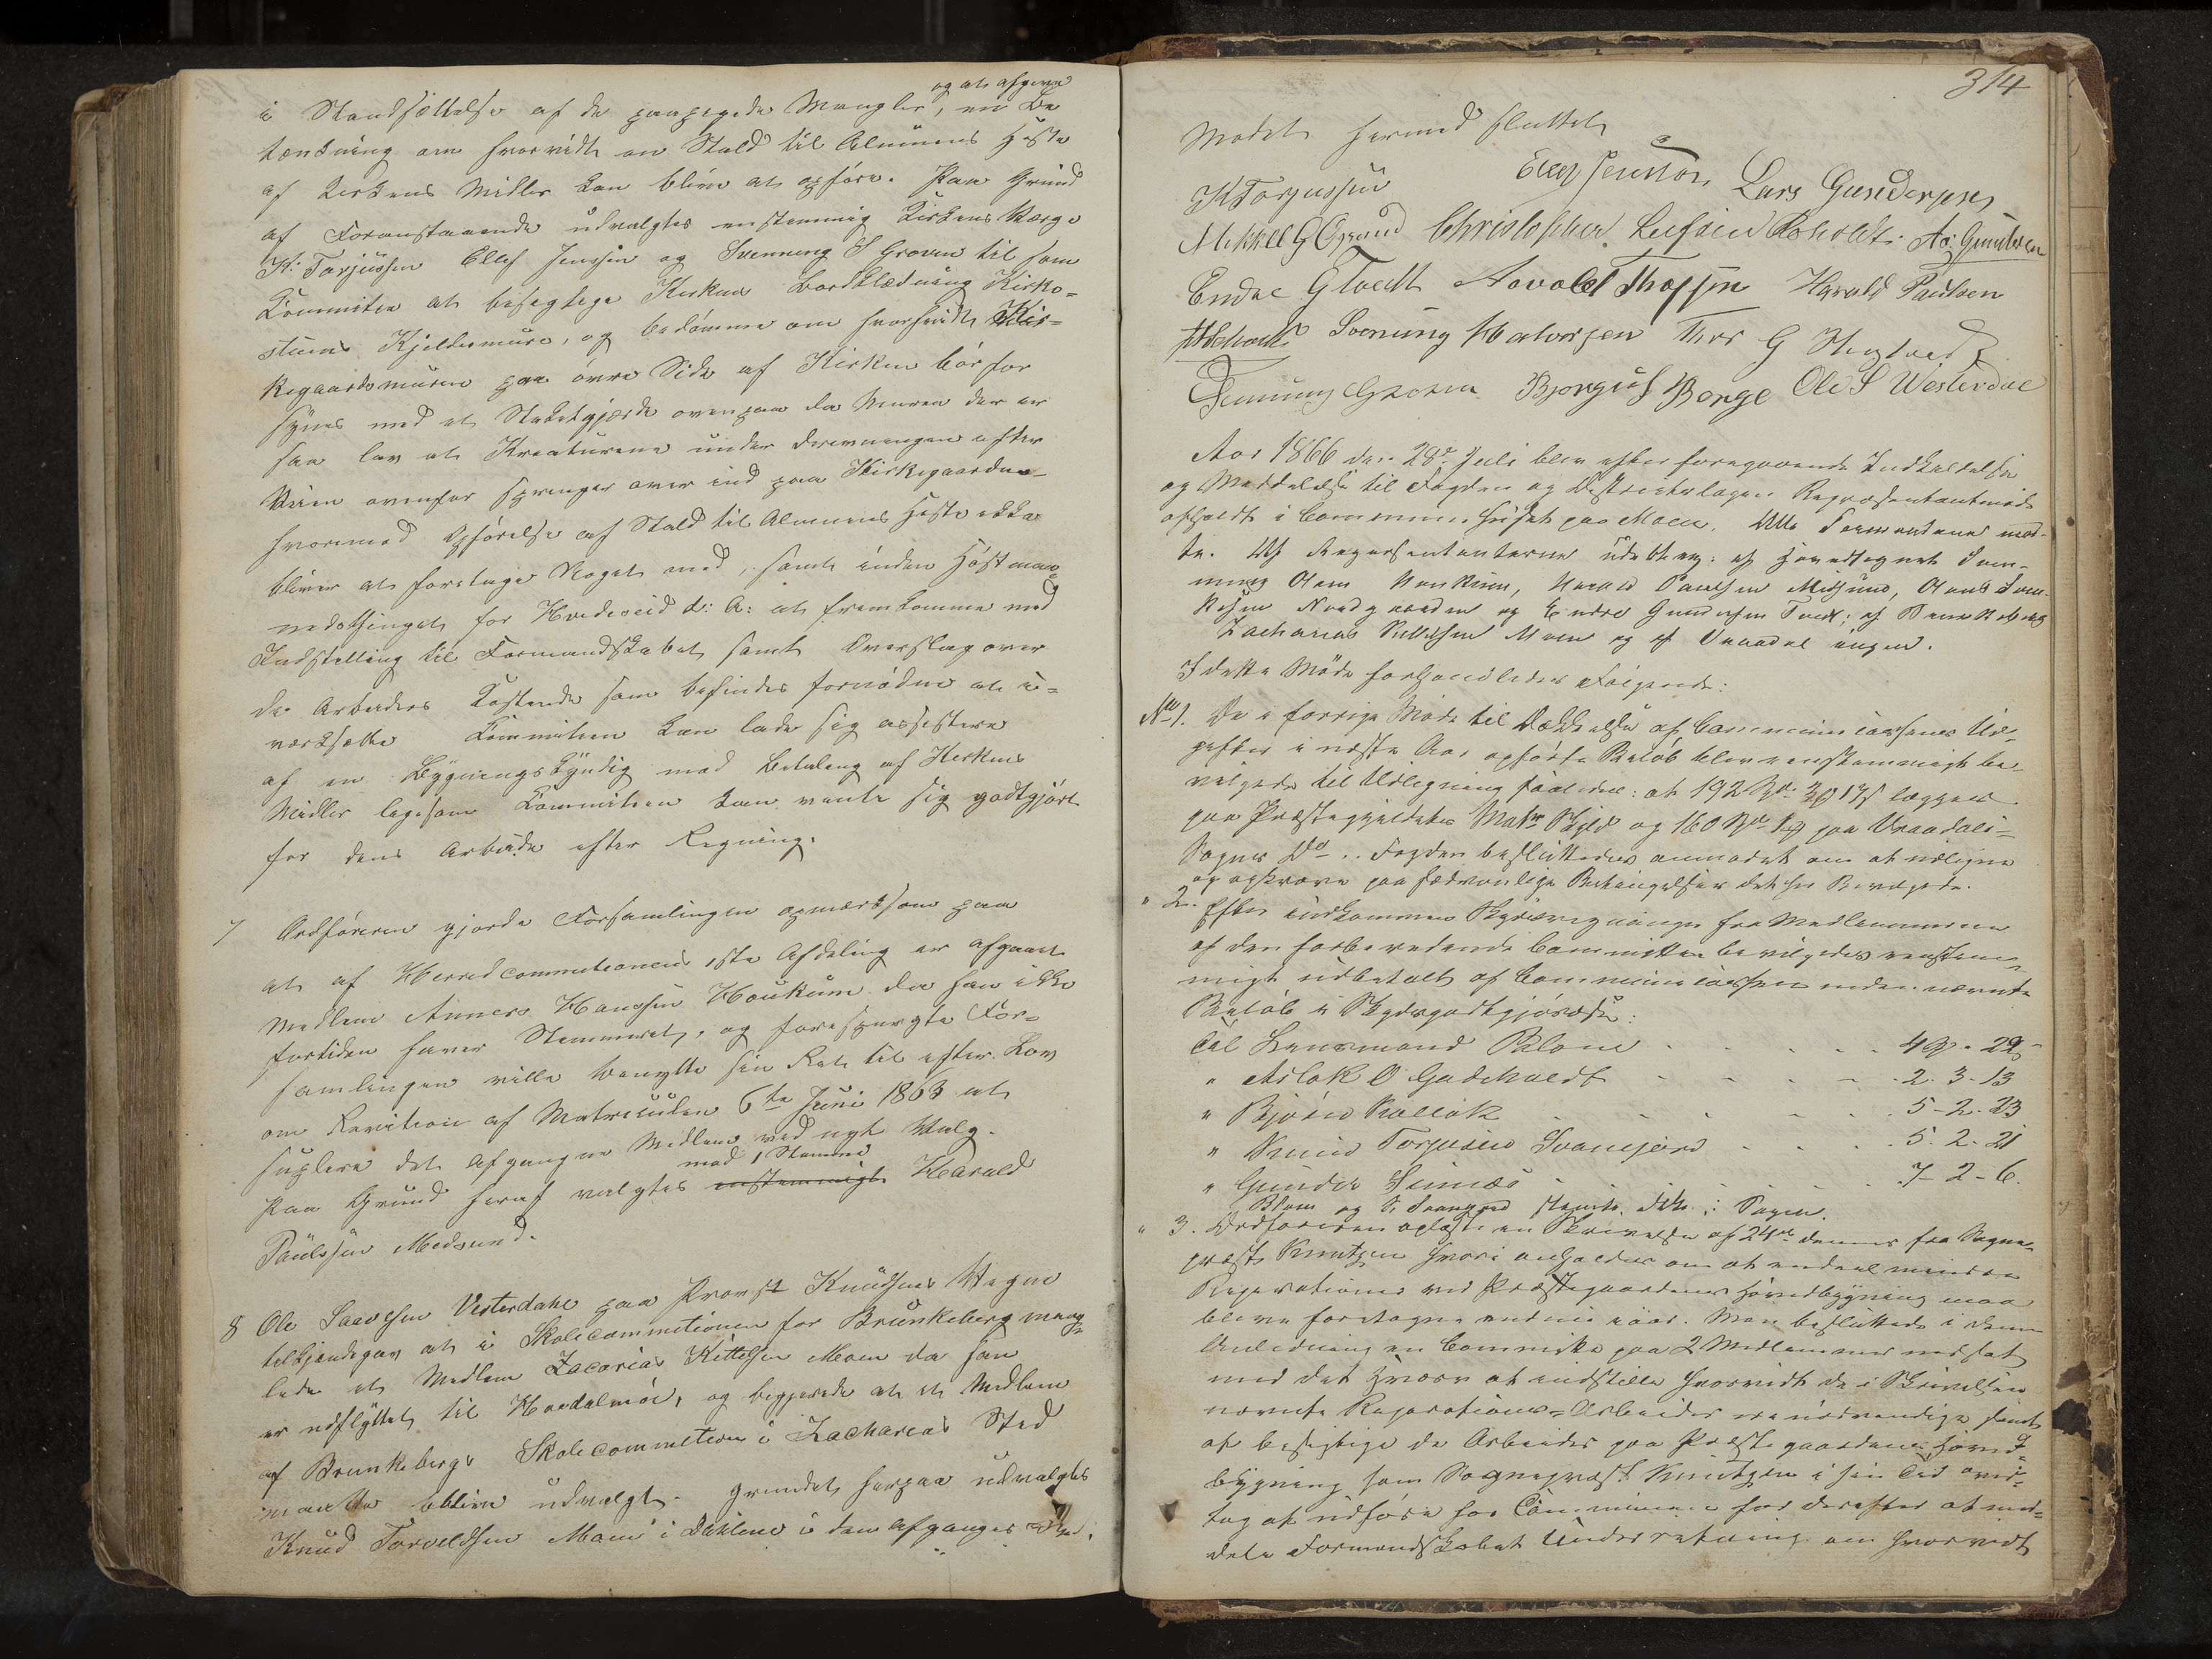 og at afgive
i Standsættelse af de paapegede Mangler, en Be
tænkning om hvorvidt en Stald til Almuens Heste
af Kirkens Midler kan blive at opføre. Paa Grund
af Foranstaaende udvalgtes enstemmig Kirkens Værge
K: Torjussen Ellef Jenssen og Svenning S Groven til som
Committee at besigtige Kirkens Bordklædning Kirke-
stuens Kjeldermure, og bedømme om hvorvidt Kir-
kegaardsmuren paa øvre Side af Kirken bør for
synes med et Staketgjærde ovenpaa da Muren der er
saa lav at Kreaturene under Drevningen efter
Veien ovenfor springer over ind paa Kirkegaarden
hvorimod Opførelse af Stald til Almuens Heste ikke
bliver at foretage Noget med, samt inden Høstman
dtinget for Hvideseid d: A: at fremkomme med
Indstilling til Formandskabet samt Overslag over
de Arbeiders Kostende som befindes fornødne at i-
værksætte Committeen kan lade sig assistere
af en Bygningskyndig mod Betaling af Kirkens
Midler ligesom Committeen kan vente sig godtgjort
for dens Arbeide efter Regning.
7 Ordføreren gjorde Forsamlingen opmærksom paa
at af Herredcommitionens 1ste Afdeling er afgaaet
Medlem Anners Hanssen Haukum da han ikke
fortiden haver Stemmeret, og forespurgte For-
samlingen ville benytte sin Ret til efter Lov
om Revition af Matriculen 6te Juni 1863 at
suplere det afgangne Medlem ved nyt Valg.
med 1 Stemme
Paa Grund heraf valgtes enstemmigt Harald
Paulssen Medsund.
8 Ole Saavesen Vesterdahl paa Provst Knudsens Vegne
tilkjendegav at i Skolecommitionen for Brunkeberg mang
lede et Medlem Zacarias Kittelsen Moen da han
er udflyttet til Hordalmoe, og begjerede at et Medlem
af Brunkebergs Skolecommition i Zacharias Sted
maatte blive udvalgt. Grundet herpaa udvalgtes
Knud Torveldsen Moen i Dahlene i den Afganges Sted.
314
Mødet hermed sluttet
K Torjussen Ellef Jenssen Lars Gundersen
Mikkel G Opsund Christopher Leifsen Roholdt. As: Gundersen
Endre G Tvedt Aavold Thorssen Harald Paulsen
Svenung Halvorsen Thor G Hegtvedt
Svenung Groven Bjorgulf Berge Ole S Westerdal
Aar 1866 den 28de Juli blev efter foregaaende Indkaldelse
og Meddelelse til Fogden og Distriktslægen Repræsentantmøde
afholdt i Communehuset paa Moen. Alle Formændene mød-
te. Af Repræsentanterne udebleve: af Hovedsognet Sven-
nung Olsen Haukum, Harald Paulsen Midsund, Hans Sven-
kesen Nordgaarden og Endre Gundersen Tvedt; af Brunkeberg
Zacharias Kittelsen Moen og af Vraadal ingen.
I dette Møde forhandledes Følgende:
No 1. De i forrige Møde til Dækkelse af Communecassens Ud-
gifter i næste Aar opførte Beløb blev eenstemmigt be-
vilgede til Udligning saaledes: at 192 Spd 3 17 s lægges
paa Præstegjældets Matr Skyld og 160 Spd 1 paa Vraadals-
Sogns Do.. Fogden besluttedes anmodet om at udligne
og opkræve paa sædvanlige Betingelser det her Bevilgede.
" 2. Efter indkommen Skydsregninger fra Medlemmerne
af den forberedende Committee bevilgedes eenstem-
migt udbetalt af Communecassen neden nævnte
Beløb i Skydsgodtgjørelse:
Til Lensmand Blom . . . . 4 . 22
" Aslak O Gadeholdt . . . . 2. 3. 13
" Bjørn Kallok . . . . 5-2-23
" Knud Torjusen Svanejord . . . 5. 2. 21
" Gunder Simæs . . . . 7-2-6.
Blom og K. Svanejord stemte ikke i Sagen.
" 3. Ordføreren oplæste en Skrivelse af 24de dennes fra Sogne-
præst Knutzen hvori anholdes om at endeel mindre
Reparationer ved Præstegaardens Hovedbygning maa
blive foretagne endnu iaar. Man besluttede i denne
Anledning en Committe paa 2 Medlemmer nedsat
med det Hverv at indstille hvorvidt de i Skrivelsen
nævnte Reparations-Arbeider ere nødvendige samt
at besigtige de Arbeider paa Præstegaardens Hoved-
bygning som Sogneprest Knutzen i sin Tid over-
tog at udføre for Communen for derefter at med-
dele Formandskabet Underretning om hvorvidt